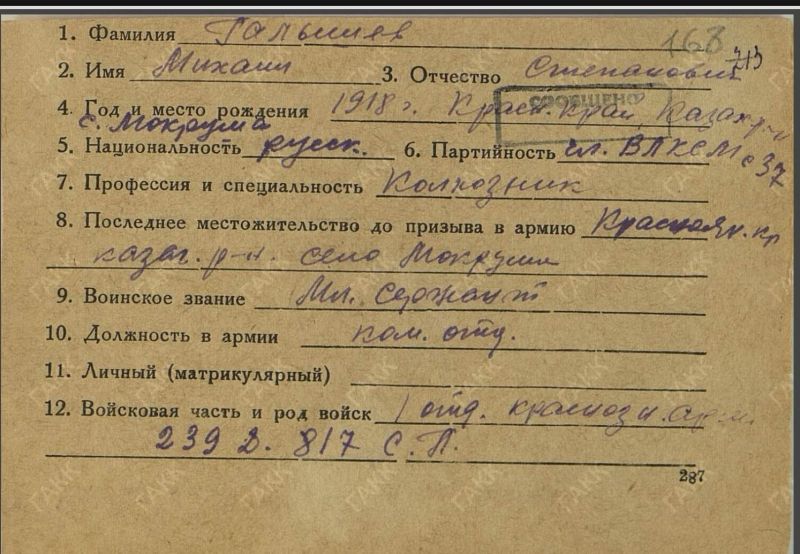 168
213
1. Фамилия Галышев
2. Имя Михаил 3. Отчество Степанович
СООБЩЕНО
4. Год и место рождения 1918 г. Красн. край Казач. р-н
с. Мокруша
5. Национальность русск. 6. Партийность чл. ВЛКСМ с 37
7. Профессия и специальность Колхозник
8. Последнее местожительство до призыва в армию Краснояр. кр
казач. р-н. село Мокруша
9. Воинское звание Мл. сержант
10. Должность в армии ком. отд.
11. Личный (матрикулярный)
12. Войсковая часть и род войск 1 отд. краснозн. арм.
239 д. 817 С.П.
287